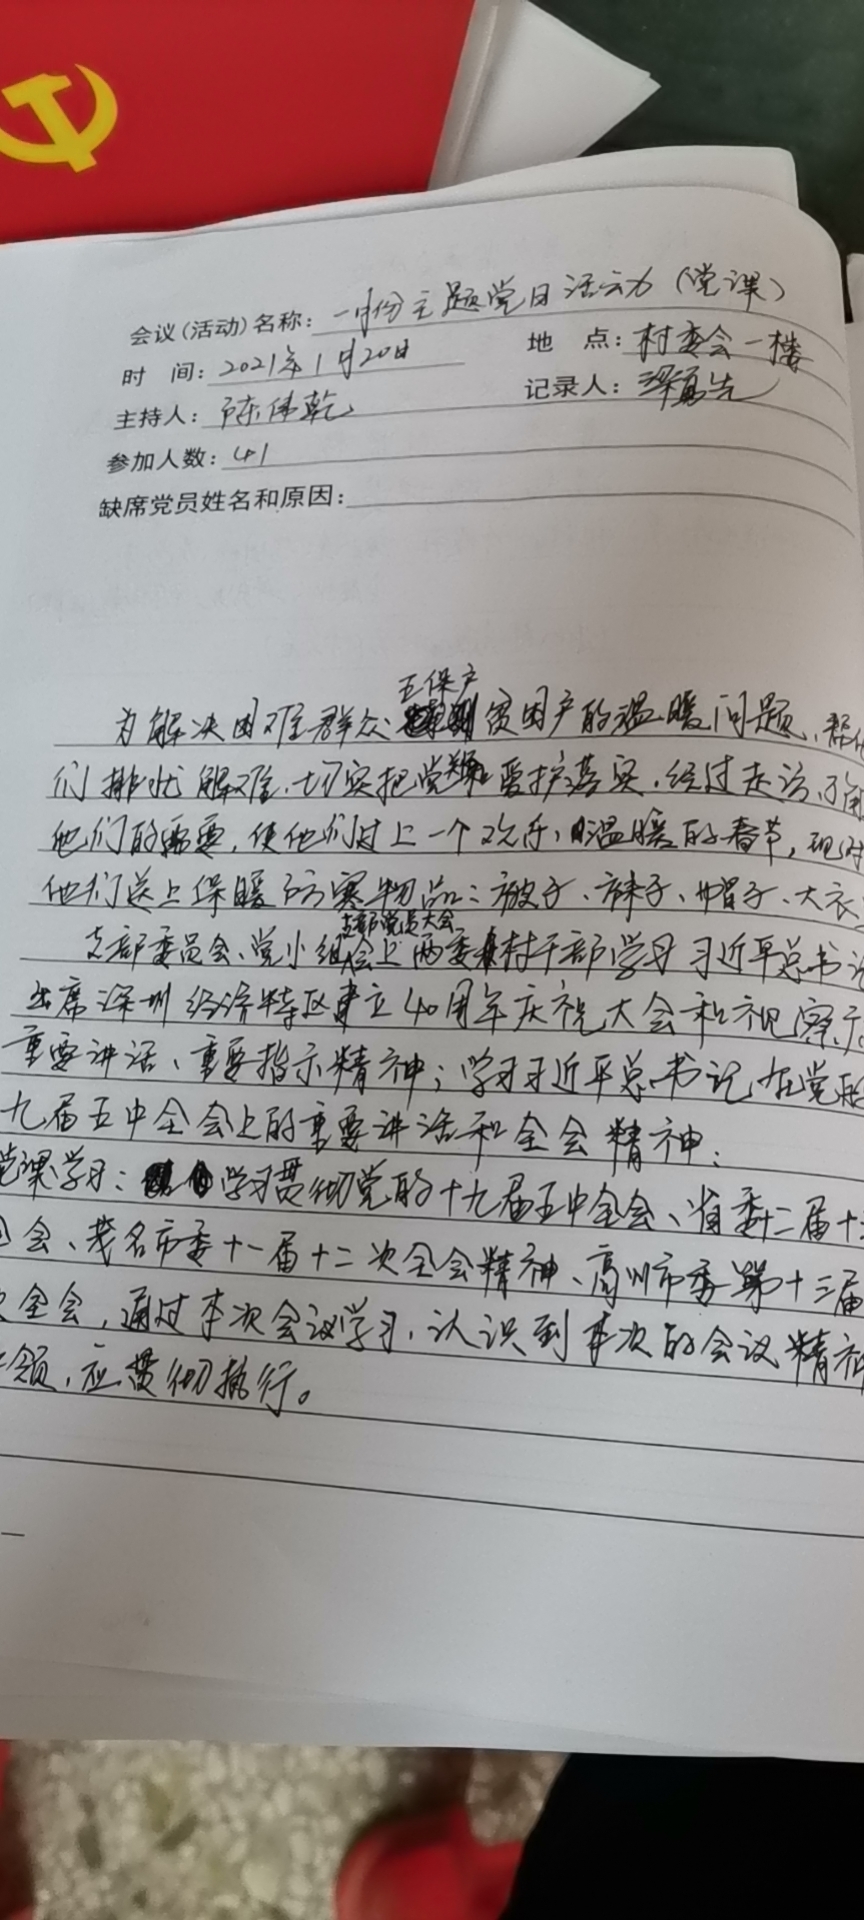 会议(活动)名称: 一月份主题党日活动(党课)
时 间: 2021年1月20日 地 点: 村委会一楼
主持人: 陈伟乾 记录人: 梁
参加人数: 41
缺席党员姓名和原因:
五保户
为解决困难群众 贫困户的温暖问题、帮他
们排忧解难,切实把党 爱护落实,经过走访,了解
他们的需要,使他们过上一个欢乐、温暖的春节,现对
他们送上保暖防寒物品:被子、袜子、帽子、大衣
支部党员大会
支部委员会、党小组会上两委村干部学习习近平总书记
出席深圳经济特区建立40周年庆祝大会和视察广
重要讲话、重要指示精神;学习习近平总书记在党的
九届五中全会上的重要讲话和全会精神;
党课学习: 学习贯彻党的十九届五中全会、省委十二届十
会、茂名市委十一届十二次全会精神、高州市委第十三届
次全会,通过本次会议学习,认识到本次的会议精神
领,应贯彻执行。